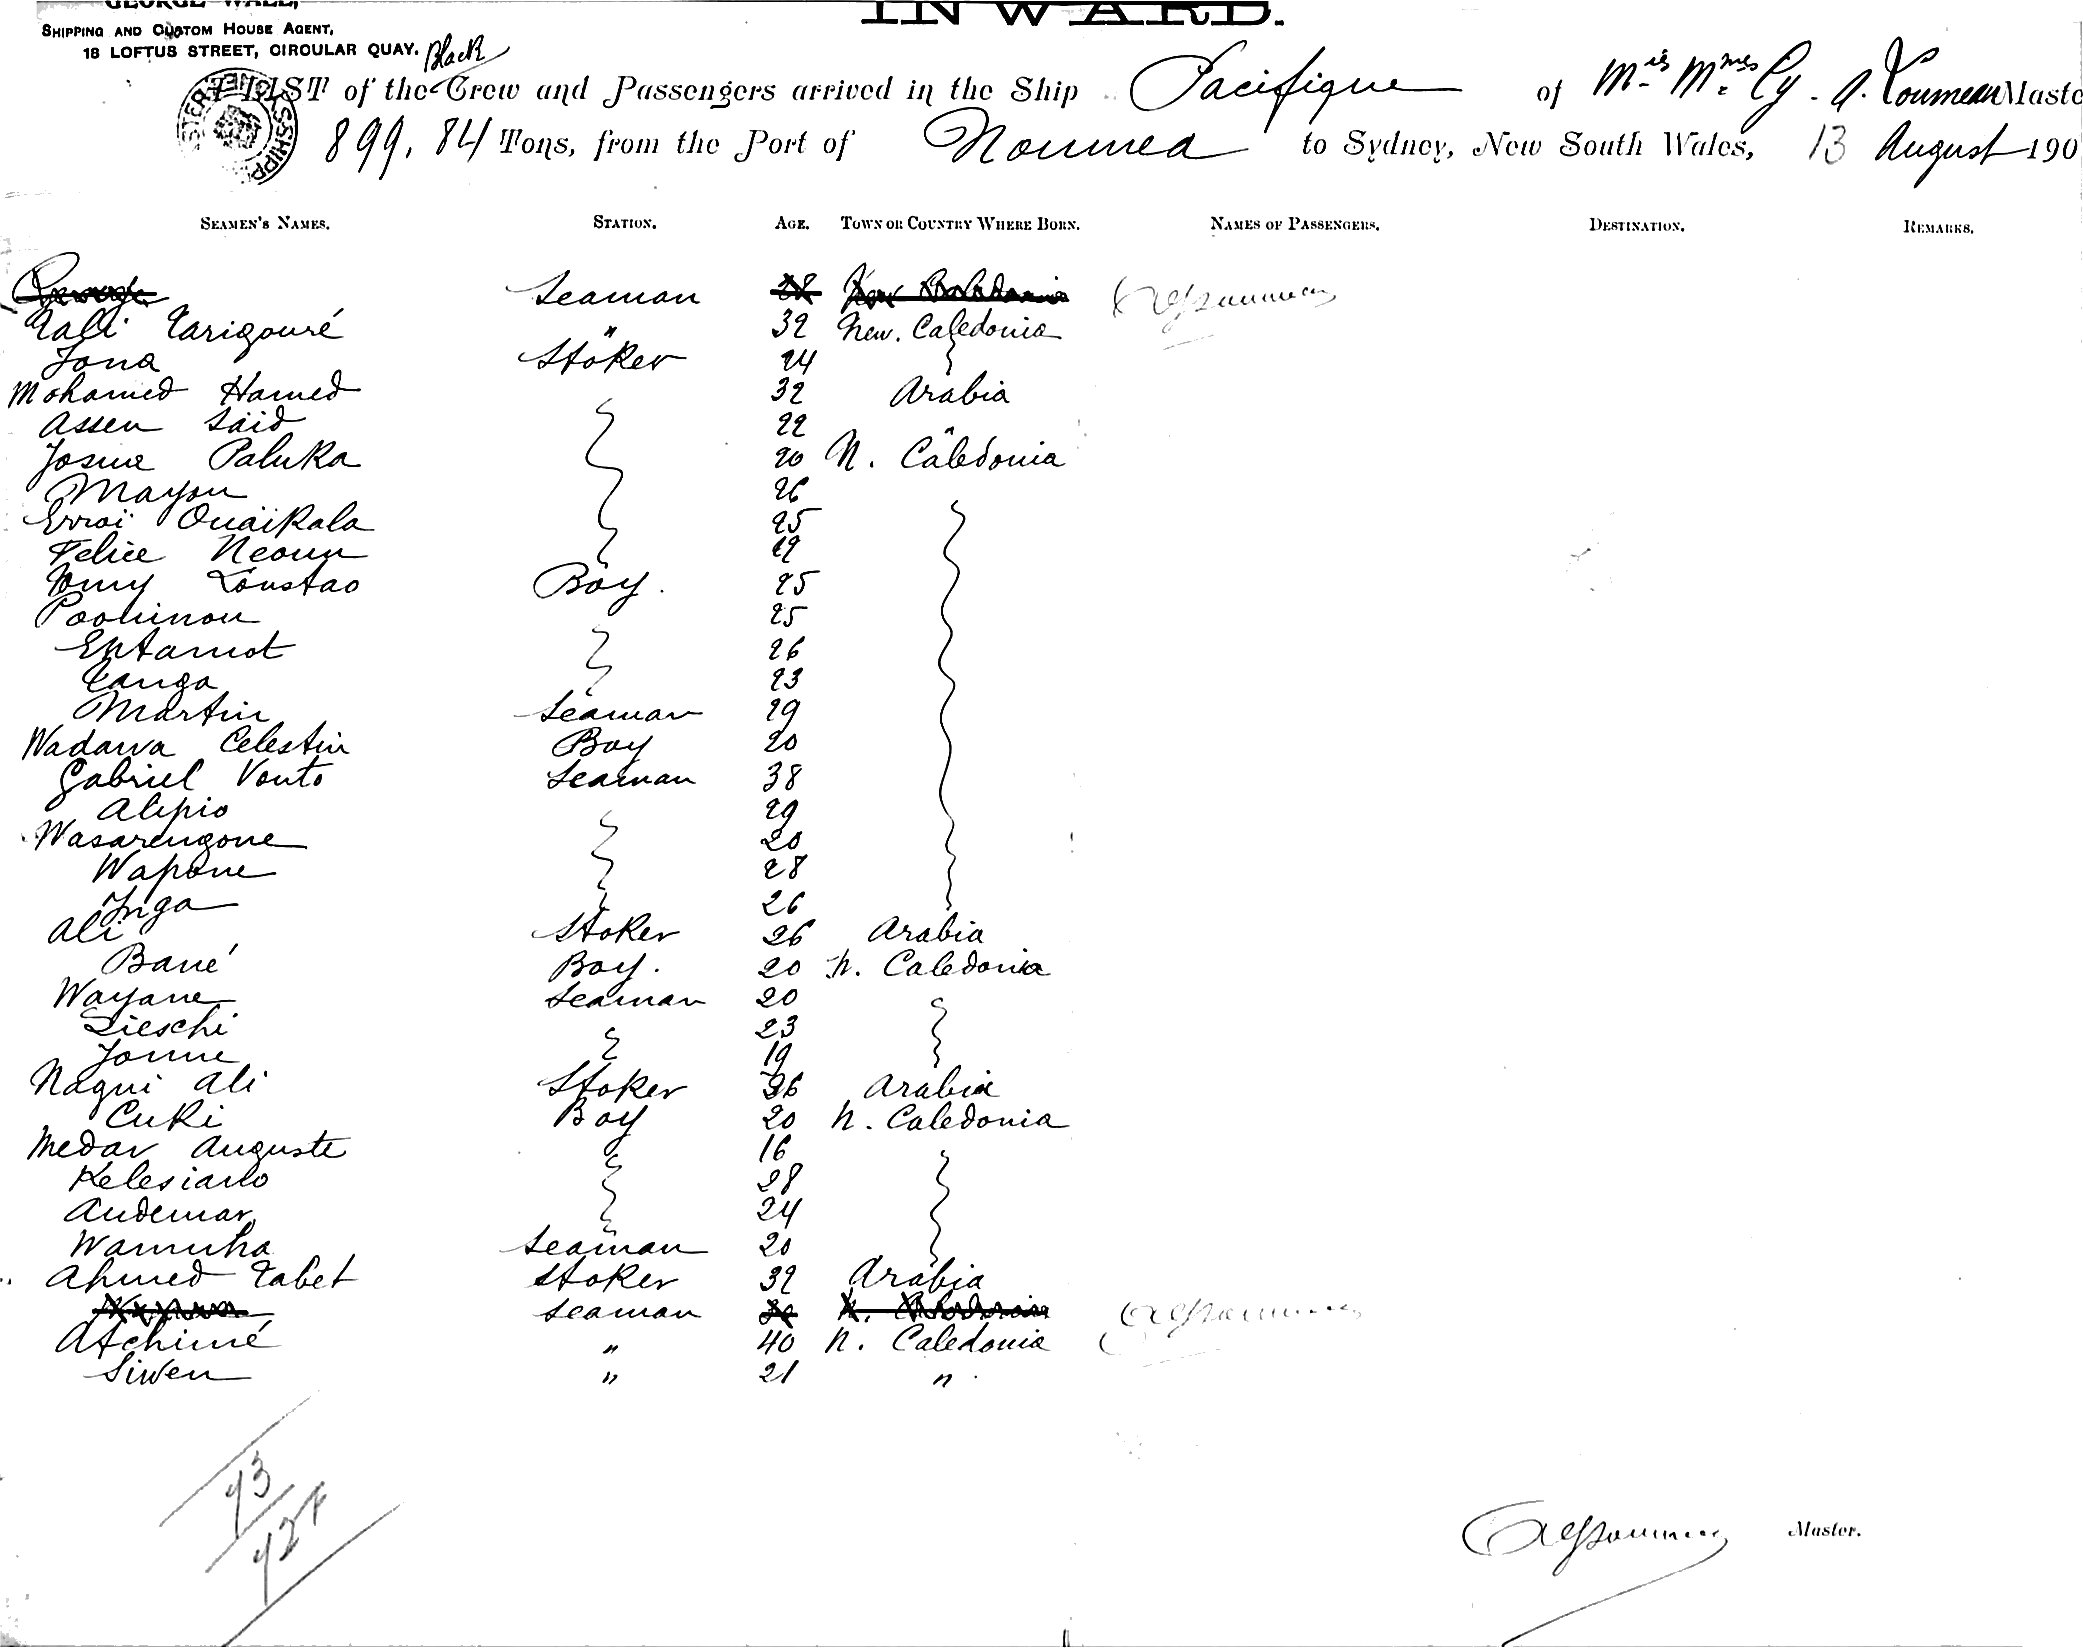 GEORGE WALL,
INWARD.
SHIPPING AND CUSTOM HOUSE AGENT,
18 LOFTUS STREET, CIRCULAR QUAY.
Black
LIST of the Crew and Passengers arrived in the Ship Pacifique of Mris Mmes Cy. A. Master
899.84 Tons, from the Port of Noumea to Sydney, New South Wales, 13 August 190
SEAMEN'S NAMES. STATION. AGE. TOWN OR COUNTRY WHERE BORN. NAMES OF PASSENGERS. DESTINATION. REMARKS.
Seaman
Tali Tarigouré " 32 New. Caledonia
Jona Stoker 24
Mohamed Hamed 32 Arabia
Assen Saïd 22 "
Josue Paluka 20 N. Caledonia
Mayou 26
Erroï Ouaïkala 25
Felice Neoun 19
Tomy Loustao Boy. 25
Poohinou 25
Entamot 26
Tanga 23
Martin Seaman 29
Wadawa Celestin Boy 20
Gabriel Vouto Seaman 38
Alipio 29
Wasarengone 20
Wapone 28
Inga 26
Ali Stoker 26 Arabia
Bané Boy. 20 N. Caledonia
Wayane Seaman 20
Sieschi 23
Joune 19
Nagui Ali Stoker 36 Arabia
Cuki Boy 20 N. Caledonia
Medar Auguste 16
Kelesiano 28
Audemar 24
Wamuha Seaman 20
Ahmed Tabet Stoker 32 Arabia
Seaman
Atchimé " 40 N. Caledonia
Siwen " 21 "
73
72
Master.